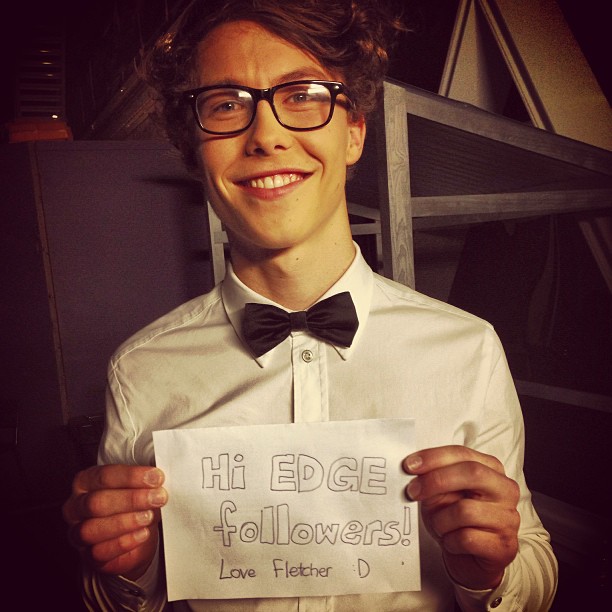 Hi EDGE
followers!
Love Fletcher :D